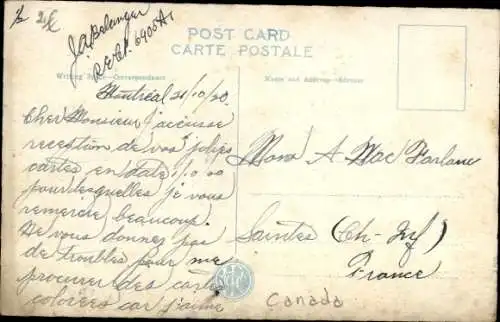 J.A. Belanger
R.E.C.P. 6906 A1
POST CARD
CARTE POSTALE
Writing Space—Correspondance
Name and Address—Adresse
Montréal 21/10/20.
Cher Monsieur j'accuse
reception de vos jolies
cartes en date
pour lesquelles je vous
remercie beaucoup.
Ne vous donnez pas
de troubles pour me
procurer des cartes
colorées car j'aime
Mons A. Mac Farlane
Saintes (Ch-Inf)
France
Canada